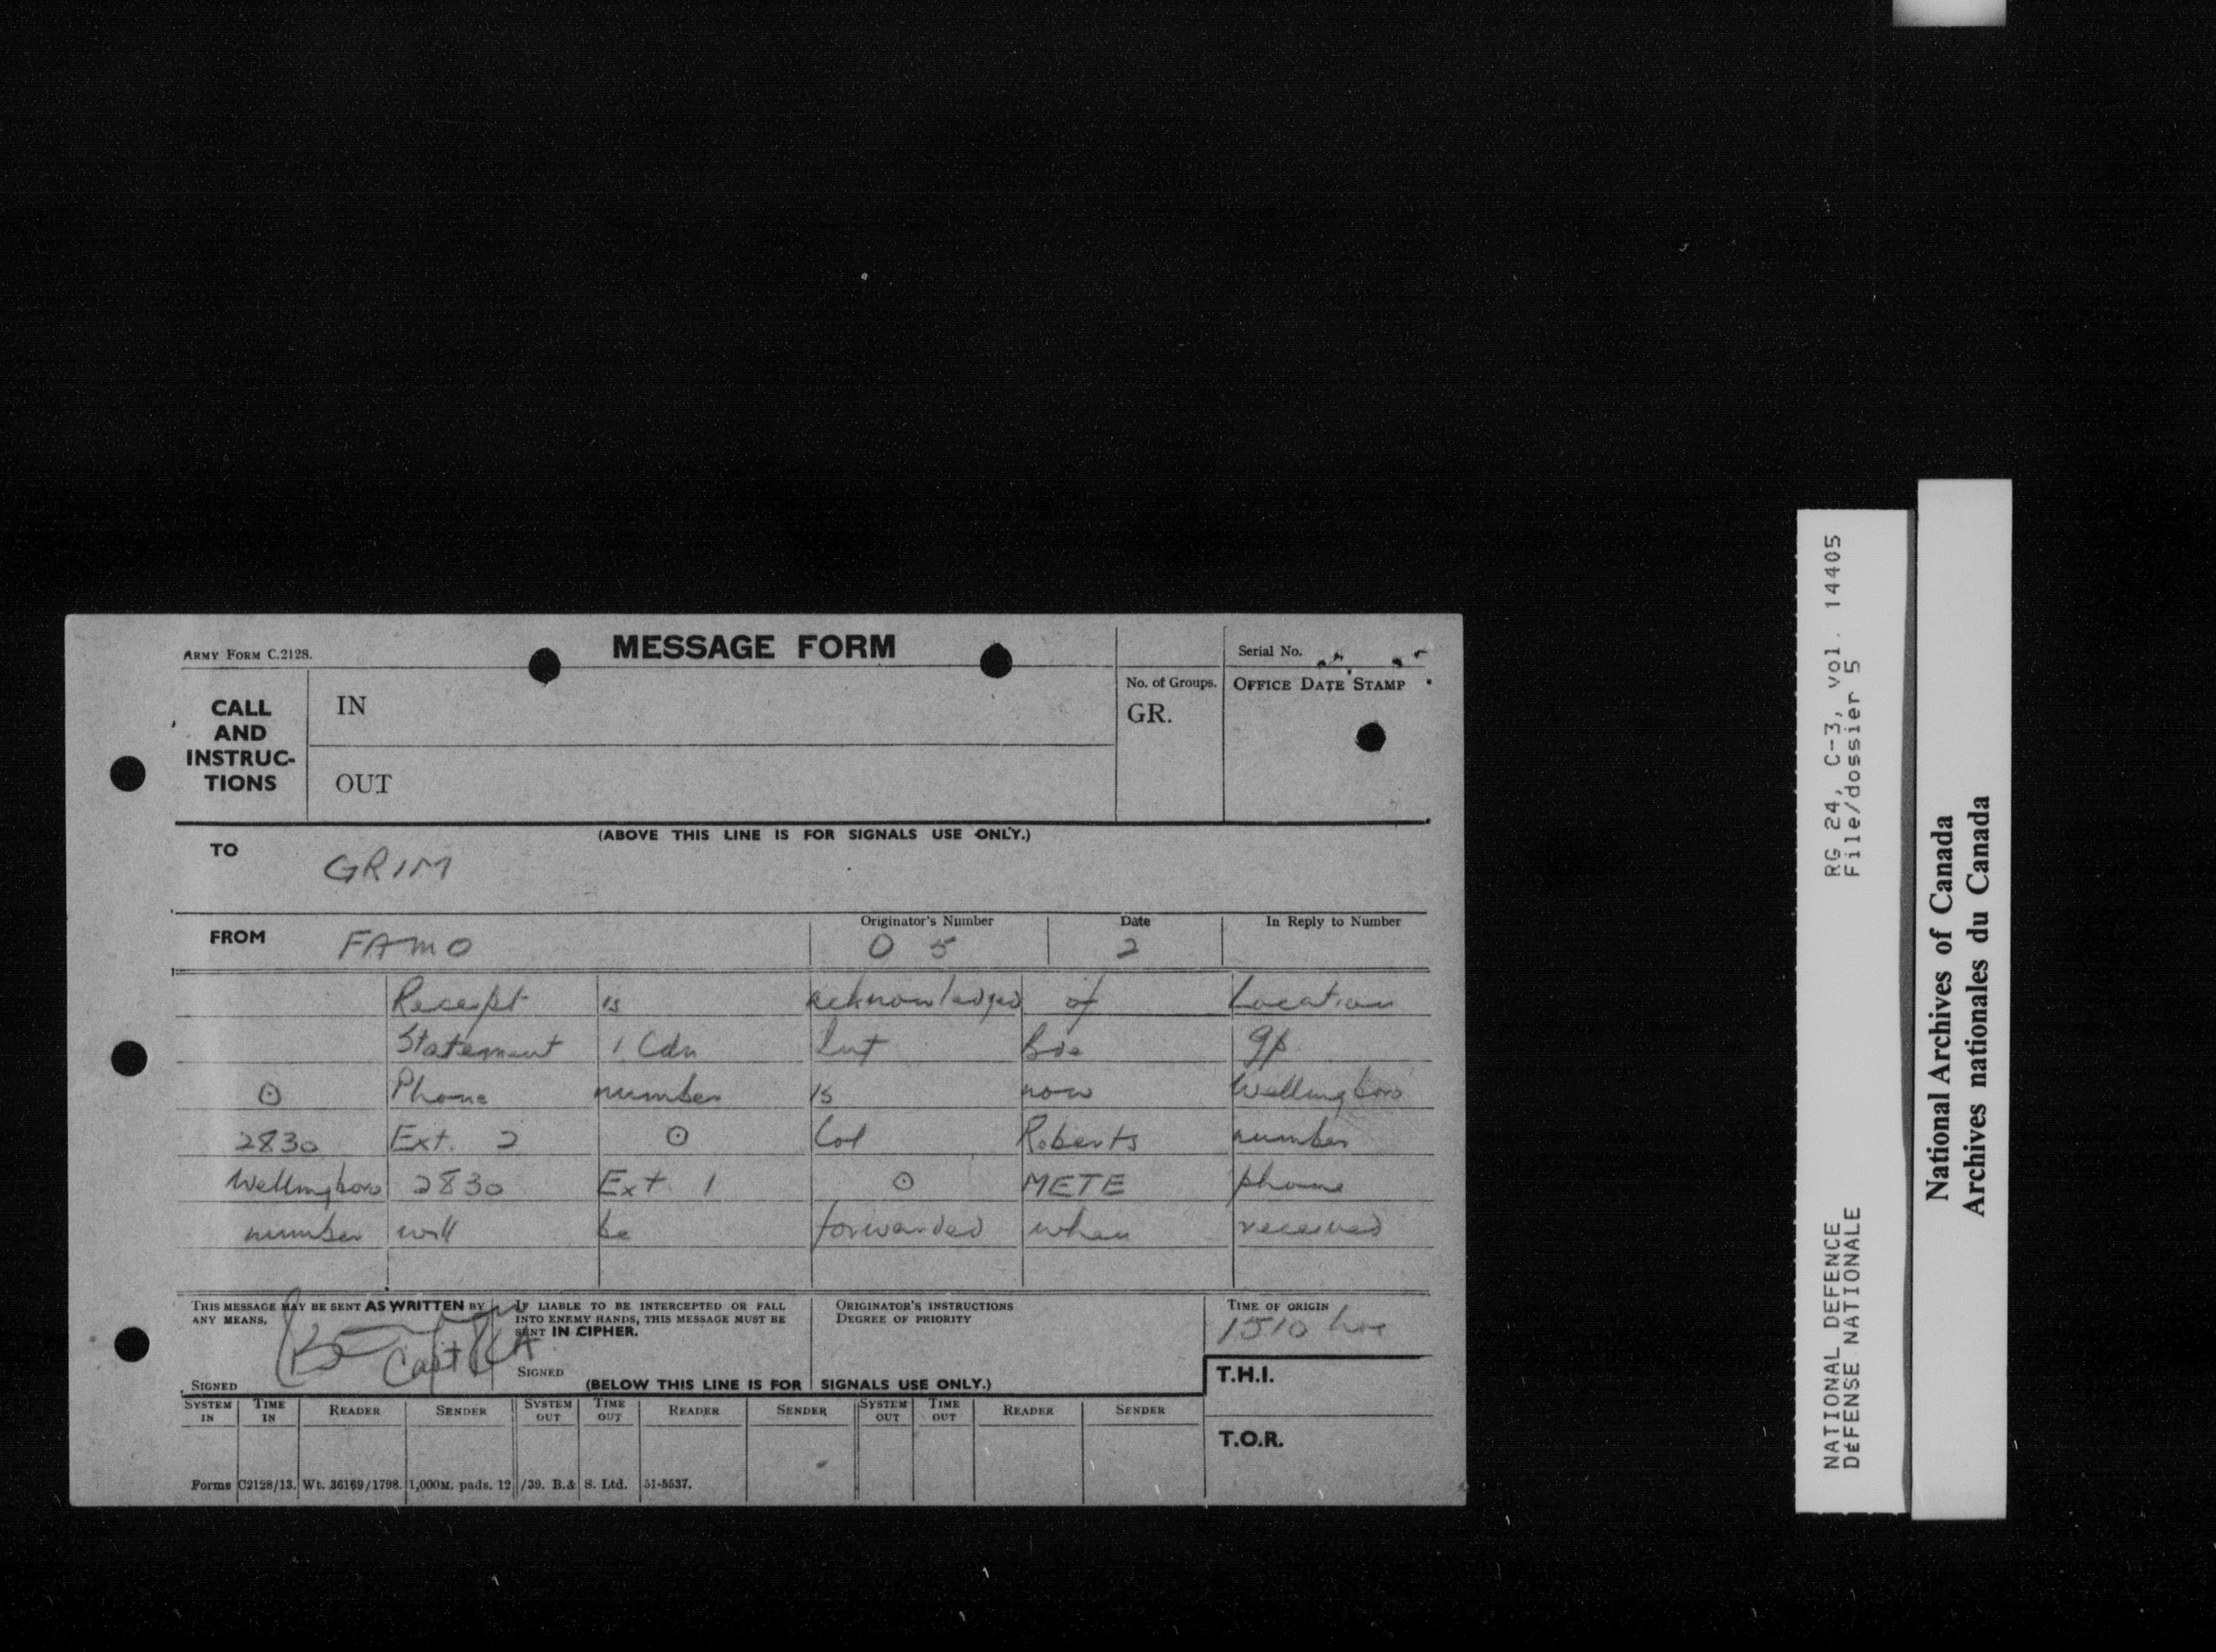 ARMY FORM C.2128.
MESSAGE FORM
Serial No.
CALL AND INSTRUC-TIONS
IN
OUT
No. of Groups.
GR.
OFFICE DATE STAMP
(ABOVE THIS LINE IS FOR SIGNALS USE ONLY.)
TO GRIM
FROM FAMO
Originator's Number
O 5
Date
2
In Reply to Number
Receipt is acknowledged of Location
Statement 1 Cdn Inf Bde gp
⊙ Phone number is now Wellingboro
2830 Ext. 2 ⊙ Col Roberts number
Wellingboro 2830 Ext 1 ⊙ METE phone
number will be forwarded when received
THIS MESSAGE MAY BE SENT AS WRITTEN BY ANY MEANS.
Capt
SIGNED
IF LIABLE TO BE INTERCEPTED OR FALL INTO ENEMY HANDS, THIS MESSAGE MUST BE SENT IN CIPHER.
SIGNED
ORIGINATOR'S INSTRUCTIONS
DEGREE OF PRIORITY
TIME OF ORIGIN
1510 hrs
T.H.I.
T.O.R.
(BELOW THIS LINE IS FOR SIGNALS USE ONLY.)
SYSTEM IN TIME IN READER SENDER SYSTEM OUT TIME OUT READER SENDER SYSTEM OUT TIME OUT READER SENDER
Forms C2128/13. Wt. 36169/1798. 1,000M. pads. 12/39. B.& S. Ltd. 51-5537.
NATIONAL DEFENCE RG 24, C-3, vol. 14405
DÉFENSE NATIONALE File/dossier 5
National Archives of Canada
Archives nationales du Canada